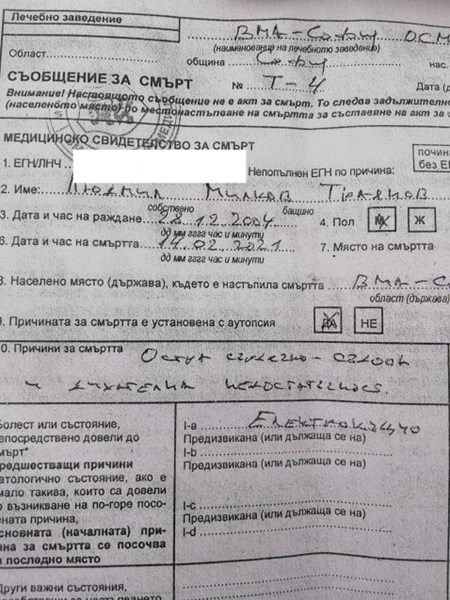 Лечебно заведение
ВМА-София ОСМ
(наименование на лечебното заведение)
Област
община София нас.
СЪОБЩЕНИЕ ЗА СМЪРТ № Т-4 Дата (д
Внимание! Настоящото съобщение не е акт за смърт. То следва задължително
(населеното място) по местонастъпване на смъртта за съставяне на акт за с
МЕДИЦИНСКО СВИДЕТЕЛСТВО ЗА СМЪРТ
почин
без ЕГ
1. ЕГН/ЛНЧ
Непопълнен ЕГН по причина:
2. Име: Людмил Милков Траянов
собствено бащино
3. Дата и час на раждане 28.12.2004 4. Пол М Ж
дд мм гггг час и минути
6. Дата и час на смъртта 14.02.2021 7. Място на смъртта
дд мм гггг час и минути
8. Населено място (държава), където е настъпила смъртта ВМА-Со
област (държава)
9. Причината за смъртта е установена с аутопсия ДА НЕ
0. Причини за смъртта Остра сърдечно-съдов
и дихателна недостатъчност.
Болест или състояние,
епосредствено довели до
мърт*
редшестващи причини
атологично състояние, ако е
мало такива, които са довели
о възникване на по-горе посо-
ената причина,
сновната (началната) при-
ина за смъртта се посочва
а последно място
I-а Електрокуцио
Предизвикана (или дължаща се на)
I-b
Предизвикана (или дължаща се на)
I-c
Предизвикана (или дължаща се на)
I-d
Други важни състояния,